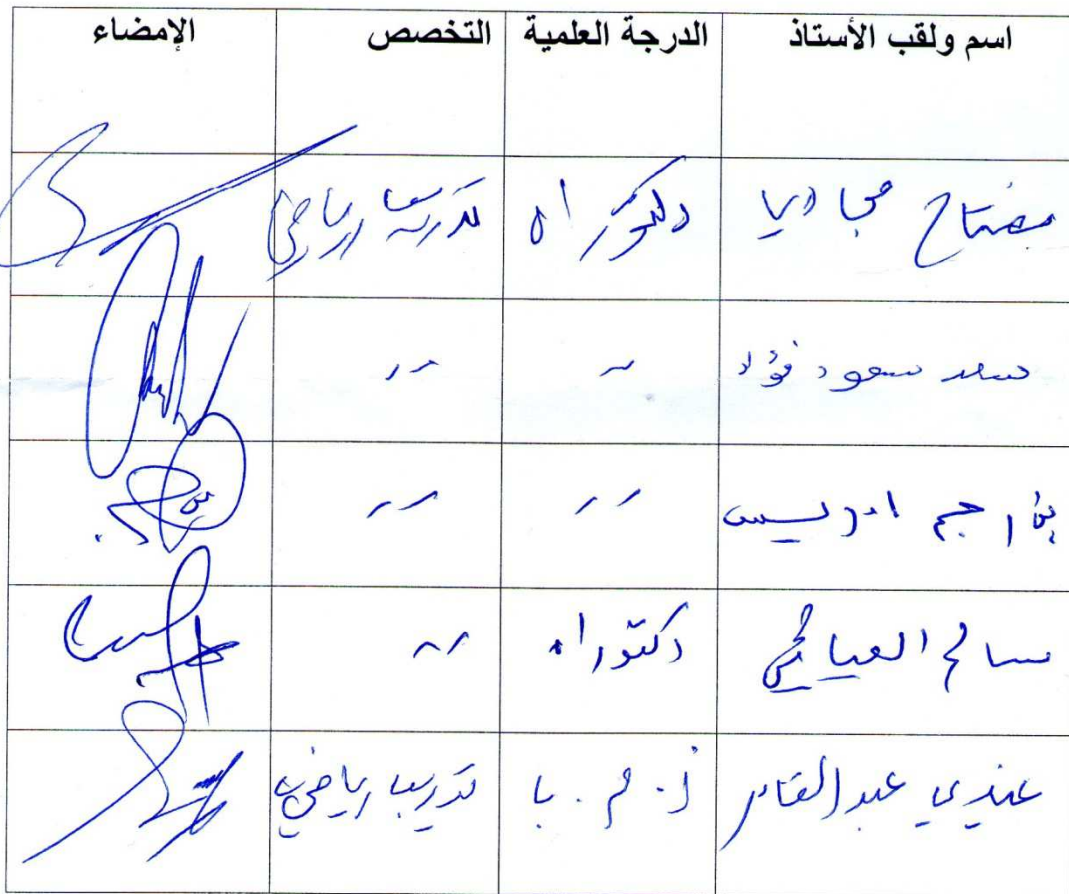 اسم ولقب الأستاذ الدرجة العلمية التخصص الإمضاء
دكتوراه تدريب رياضي
سعد سعود فؤاد
ادريس
سالم العياشي دكتوراه
عبد القادر أ. م. ب تدريب رياضي